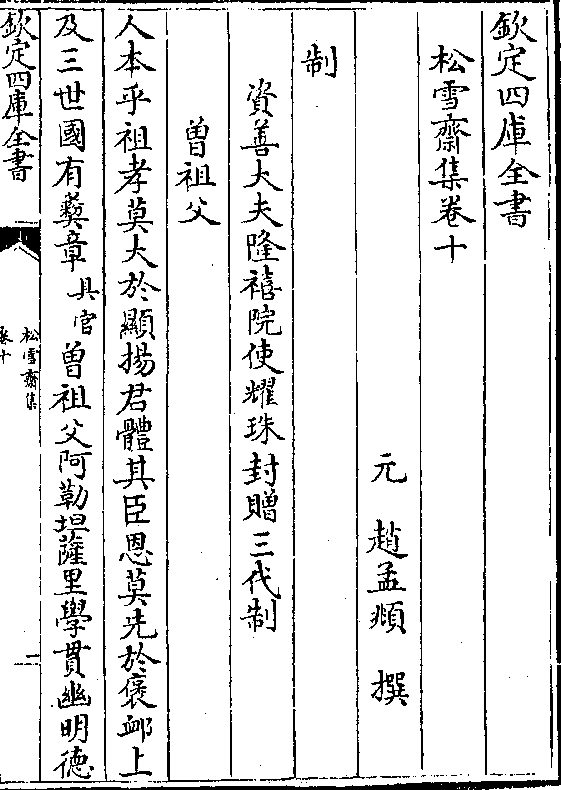 欽定四庫全書
松雪齋集卷十
元　趙孟頫　撰
制
資善大夫隆禧院使耀珠封贈三代制
曽祖父
人本乎祖孝莫大於顯揚君體其臣恩莫先於褒卹上
及三世國有彞章具官曽祖父阿勒坦薩里學貫幽明德
欽定四庫全書
松雪齋集
卷十
一